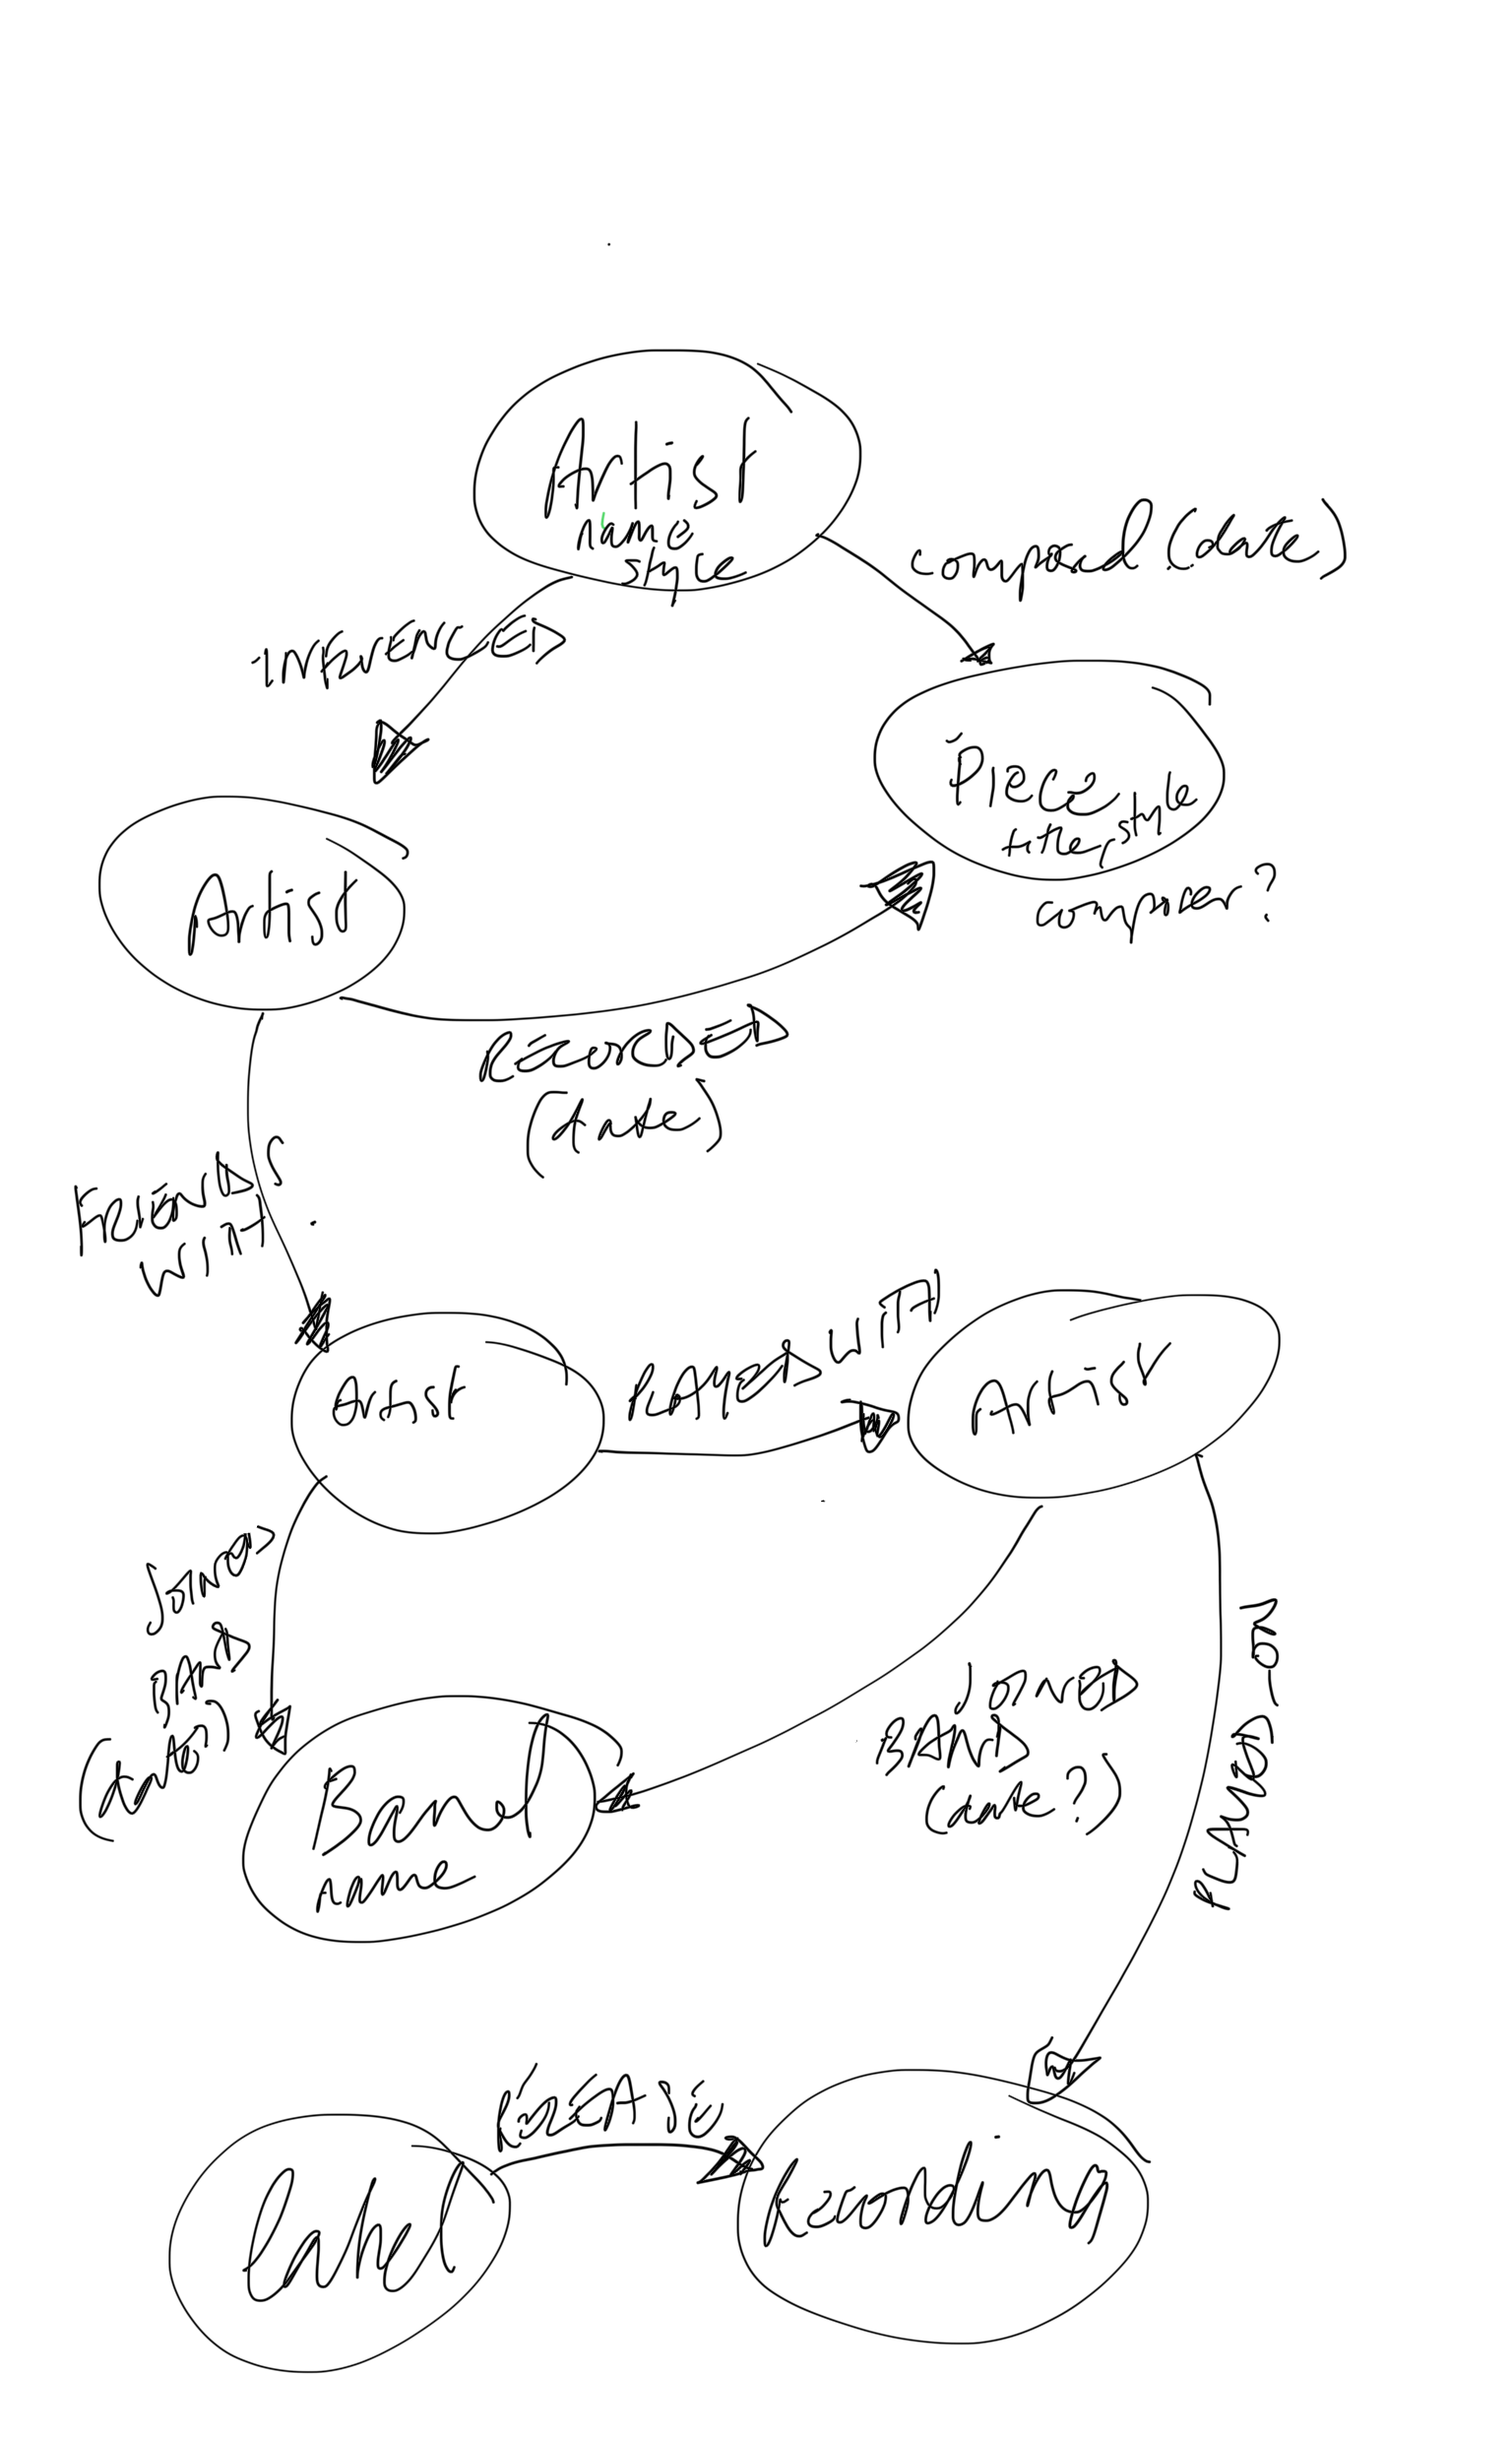 Artist
name
style
composed (date)
INFLUENCED
Piece
title style
composer?
Artist
RECORDED
(date)
FRIENDS
WITH
Artist
PLAYED WITH
Artist
JOINED
BAND
(date?)
JOINED
BAND
(date?)
PLAYED_ON
Band
name
RELEASED
Label
Recording